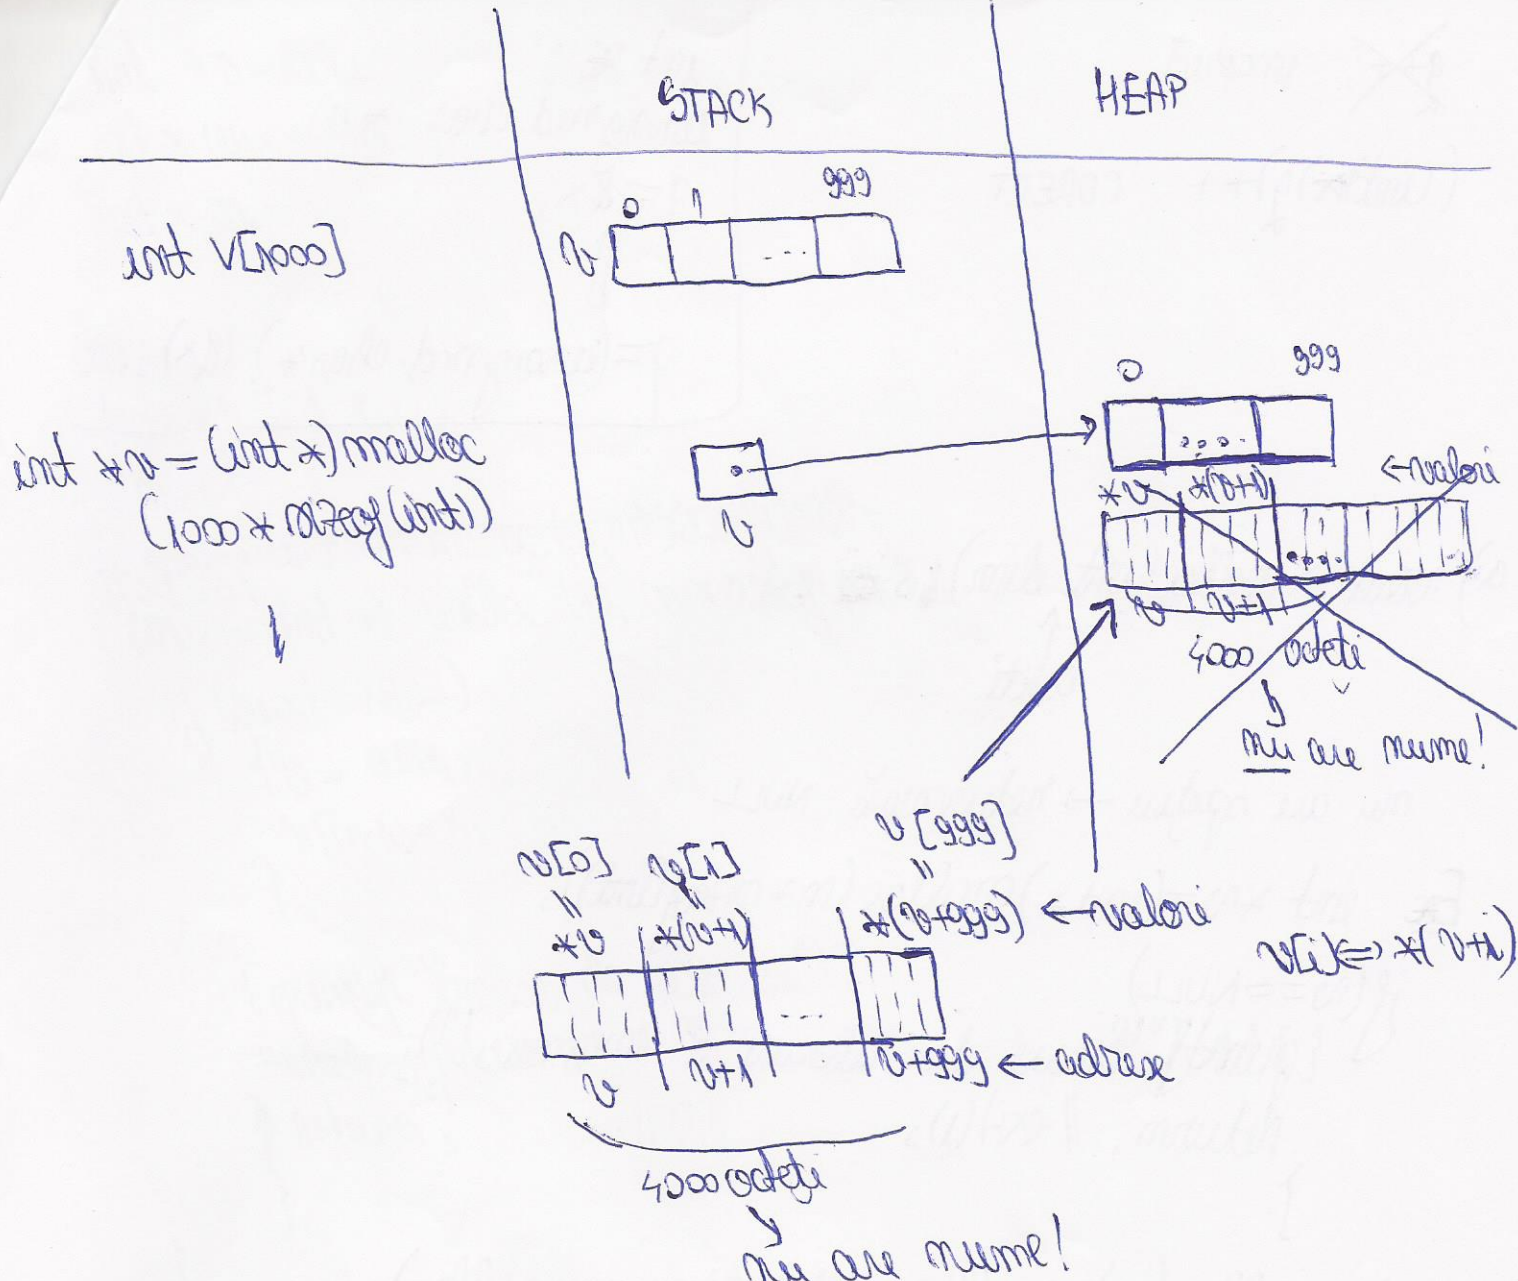 STACK HEAP
0 1 999
int V[1000] v ...
0 999
int *v = (int *) malloc
(1000 * sizeof(int))
v
....
*v *(v+1) ← valori
....
v v+1
4000 octeți
nu are nume!
v[0] v[1] v[999]
" " "
*v *(v+1) *(v+999) ← valori
v[i] <=> *(v+i)
...
v v+1 v+999 ← adrese
4000 octeți
nu are nume!